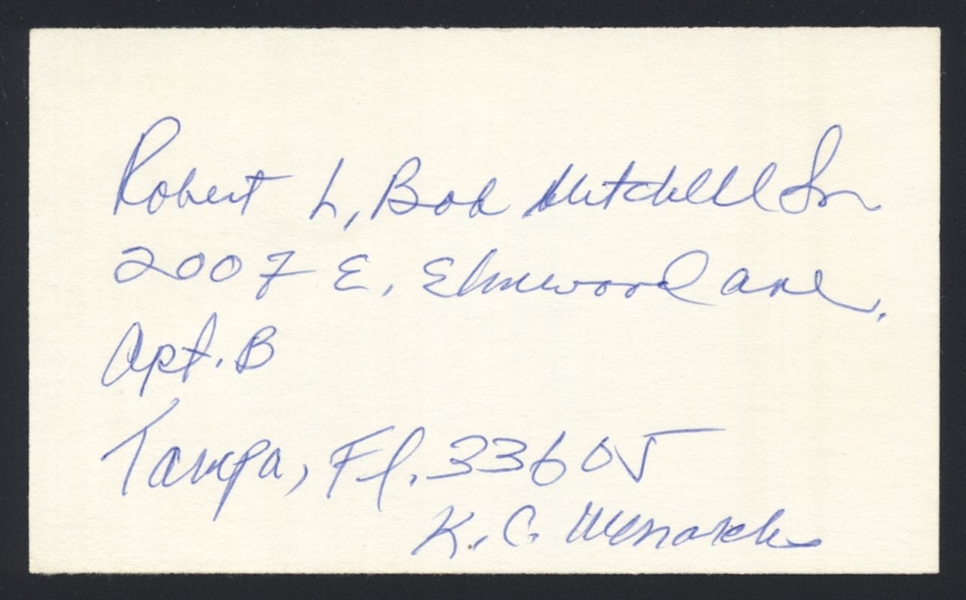 Robert L, Bob Mitchell Sr
2007 E. Elmwood Ave.
Apt. B
Tampa, Fl. 33605
K.C. Monarchs